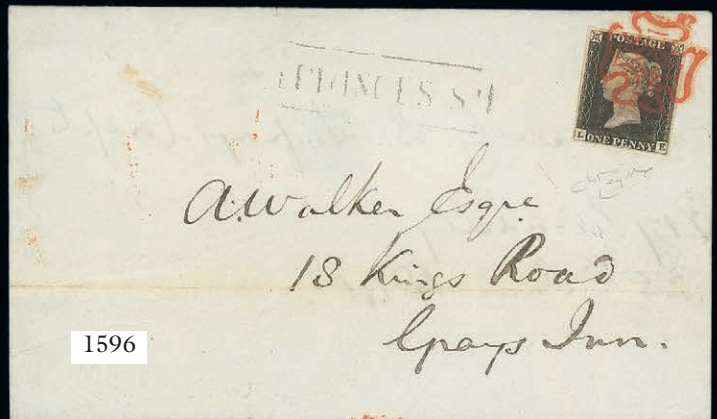 POSTAGE
L ONE PENNY E
A. Walker Esqre
18 Kings Road
Grays Inn.
1596